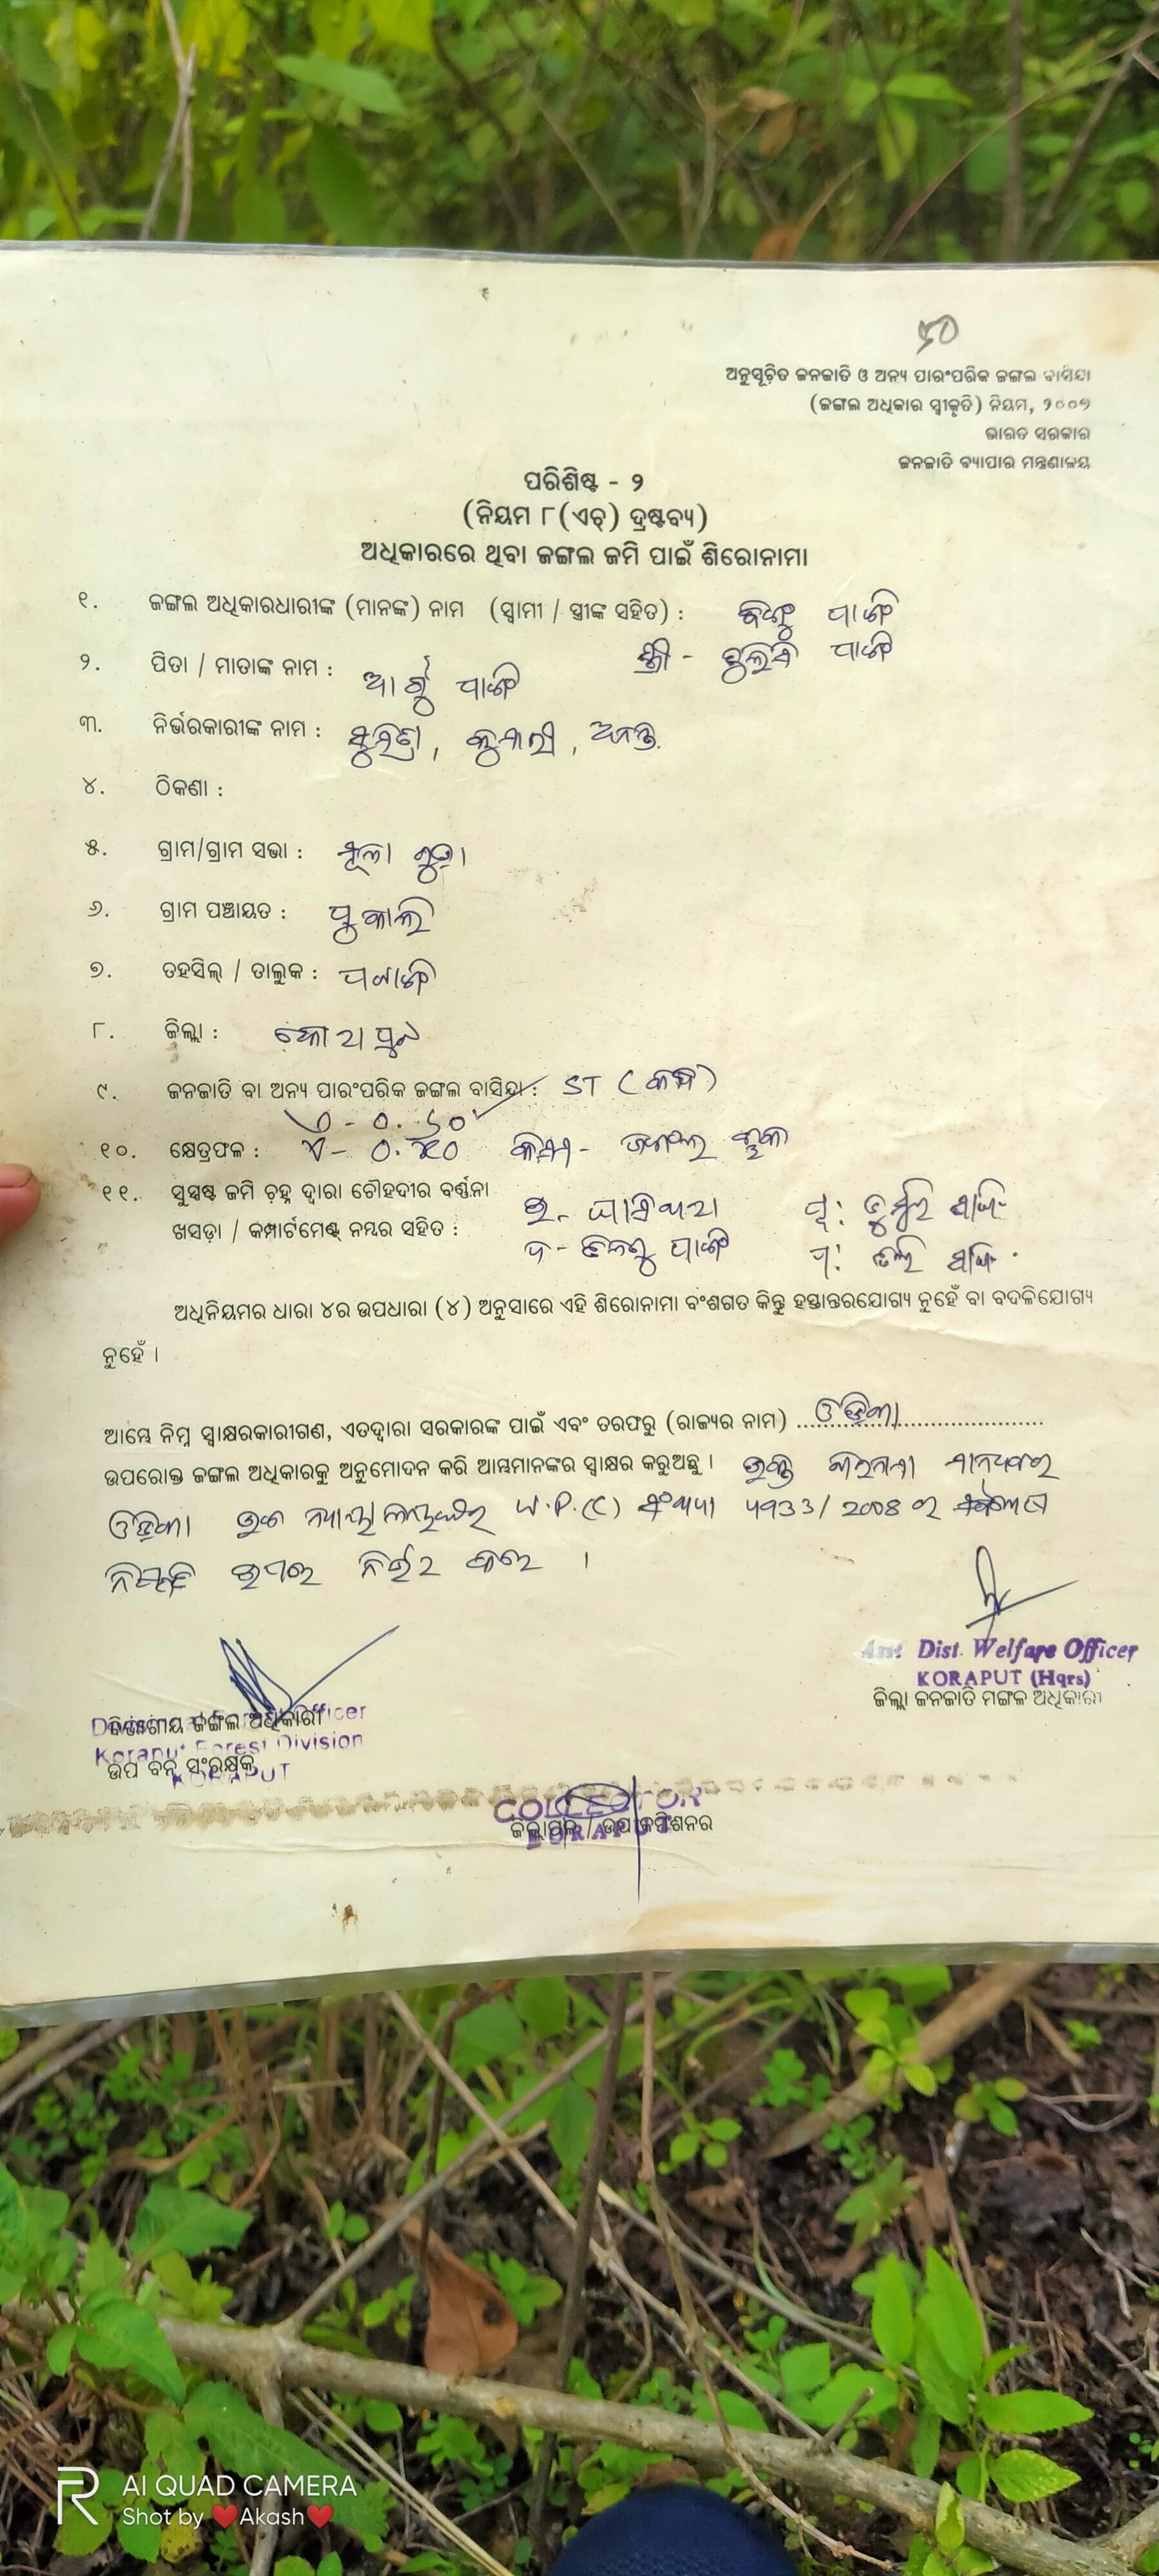 ୫୦
ଅନୁସୂଚିତ ଜନଜାତି ଓ ଅନ୍ୟ ପାରଂପରିକ ଜଙ୍ଗଲ ବାସିନ୍ଦା
(ଜଙ୍ଗଲ ଅଧିକାର ସ୍ୱୀକୃତି) ନିୟମ, ୨୦୦୭
ଭାରତ ସରକାର
ଜନଜାତି ବ୍ୟାପାର ମନ୍ତ୍ରଣାଳୟ
ପରିଶିଷ୍ଟ - ୨
(ନିୟମ ୮(ଏଚ୍) ଦ୍ରଷ୍ଟବ୍ୟ)
ଅଧିକାରରେ ଥିବା ଜଙ୍ଗଲ ଜମି ପାଇଁ ଶିରୋନାମା
୧. ଜଙ୍ଗଲ ଅଧିକାରଧାରୀଙ୍କ (ମାନଙ୍କ) ନାମ (ସ୍ୱାମୀ / ସ୍ତ୍ରୀଙ୍କ ସହିତ) :
ସ୍ତ୍ରୀ -
୨. ପିତା / ମାତାଙ୍କ ନାମ :
୩. ନିର୍ଭରକାରୀଙ୍କ ନାମ : ସୁମିତ୍ରା, କୁମାରୀ, ଅନନ୍ତ
୪. ଠିକଣା :
୫. ଗ୍ରାମ/ଗ୍ରାମ ସଭା : ମୂଳା ଗୁଡ଼ା
୬. ଗ୍ରାମ ପଞ୍ଚାୟତ : ପୁକାଲି
୭. ତହସିଲ୍ / ତାଲୁକ : ପଟାଙ୍ଗି
୮. ଜିଲ୍ଲା : କୋରାପୁଟ
୯. ଜନଜାତି ବା ଅନ୍ୟ ପାରଂପରିକ ଜଙ୍ଗଲ ବାସିନ୍ଦା : ST (କନ୍ଧ)
୧୦. କ୍ଷେତ୍ରଫଳ : କିସମ - ଜଙ୍ଗଲ
୧୧. ସୁସ୍ପଷ୍ଟ ଜମି ଚିହ୍ନ ଦ୍ୱାରା ଚୌହଦୀର ବର୍ଣ୍ଣନା
ଖସଡ଼ା / କମ୍ପାର୍ଟମେଣ୍ଟ ନମ୍ବର ସହିତ :
ଅଧିନିୟମର ଧାରା ୪ର ଉପଧାରା (୪) ଅନୁସାରେ ଏହି ଶିରୋନାମା ବଂଶଗତ କିନ୍ତୁ ହସ୍ତାନ୍ତରଯୋଗ୍ୟ ନୁହେଁ ବା ବଦଳିଯୋଗ୍ୟ
ନୁହେଁ ।
ଆମ୍ଭେ ନିମ୍ନ ସ୍ୱାକ୍ଷରକାରୀଗଣ, ଏତଦ୍ୱାରା ସରକାରଙ୍କ ପାଇଁ ଏବଂ ତରଫରୁ (ରାଜ୍ୟର ନାମ) ଓଡ଼ିଶା
ଉପରୋକ୍ତ ଜଙ୍ଗଲ ଅଧିକାରକୁ ଅନୁମୋଦନ କରି ଆମ୍ଭମାନଙ୍କର ସ୍ୱାକ୍ଷର କରୁଅଛୁ । ଉକ୍ତ ଶିରୋନାମା ମାନ୍ୟବର
ଓଡ଼ିଶା ଉଚ୍ଚ ନ୍ୟାୟାଳୟଙ୍କର W.P.(C) ସଂଖ୍ୟା ୪୯33/2008 ର
ନିଷ୍ପତ୍ତି ଉପରେ ନିର୍ଭର କରେ ।
Asst Dist. Welfare Officer
KORAPUT (Hqrs)
ଜିଲ୍ଲା ଜନଜାତି ମଙ୍ଗଳ ଅଧିକାରୀ
Divisional Forest Officer
ବିଭାଗୀୟ ଜଙ୍ଗଲ ଅଧିକାରୀ
Koraput Forest Division
ଉପ ବନ ସଂରକ୍ଷକ
KORAPUT
COLLECTOR
ଜିଲ୍ଲାପାଳ / ଉପ କମିଶନର
KORAPUT
AI QUAD CAMERA
Shot by ❤️Akash❤️